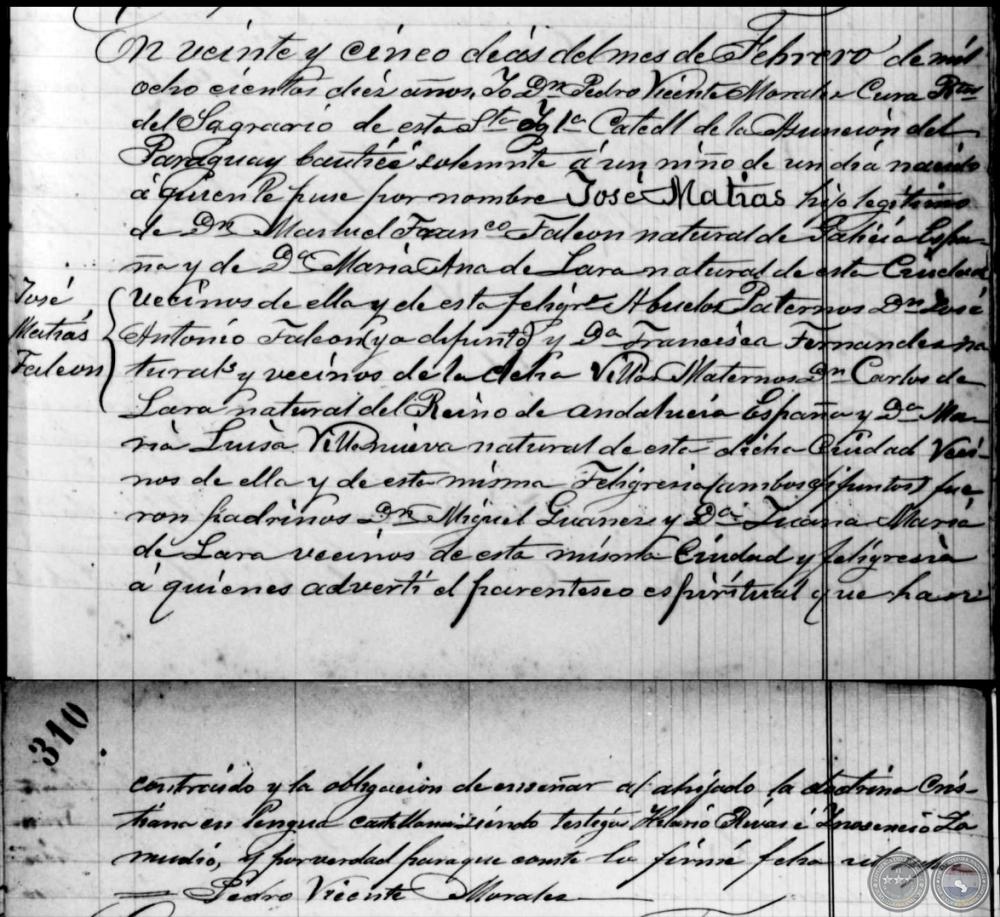 En veinte y cinco dias del mes de Febrero de mil
ocho cientos diéz años, Yo Dn Pedro Vicente Morales Cura Rtor
del Sagrario de esta Sta Ygla Catedl de la Asuncion del
Paraguay bauticé solemnte á un niño de un diá nacido
á quiente puse por nombre José Matias hijo legitimo
de Dn Manuel Franco Falcon natural de Galicia Espa-
ña y de Da Maria Ana de Lara natural de esta Ciudad
vecinos de ella y de esta feligra Abuelos Paternos Dn José
Antonio Falcon (ya difunto) y Da Francisca Fernandes na
turals y vecinos de la dcha Villa Maternos Dn Carlos de
Lara natural del Reino de andalucia España y Da Ma-
ria Luisa Villanueva natural de esta dicha Ciudad Veci-
nos de ella y de esta misma Feligresia (ambos difuntos) fue
ron padrinos Dn Miguel Guanes y Da Juana Maria
de Lara vecinos de esta misma Ciudad y feligresia
á quienes adverti el parentesco espiritual que han
José
Matias
Falcon
310
contraido y la obligacion de enseñar al ahijado la doctrina Cris-
tiana en lengua castellana siendo testigos Hilario Rivas é Inosencio Za
mudio, y por verdad para que conste lo firmé fcha
Pedro Vicente Morales